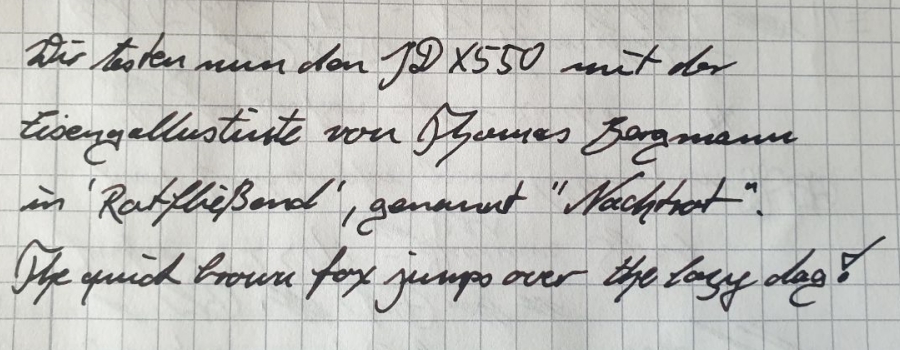 Wir testen nun den JD X550 mit der
Eisengallustinte von Thomas Bergmann
in 'Ratfließend', genannt "Nachtrot".
The quick brown fox jumps over the lazy dog!